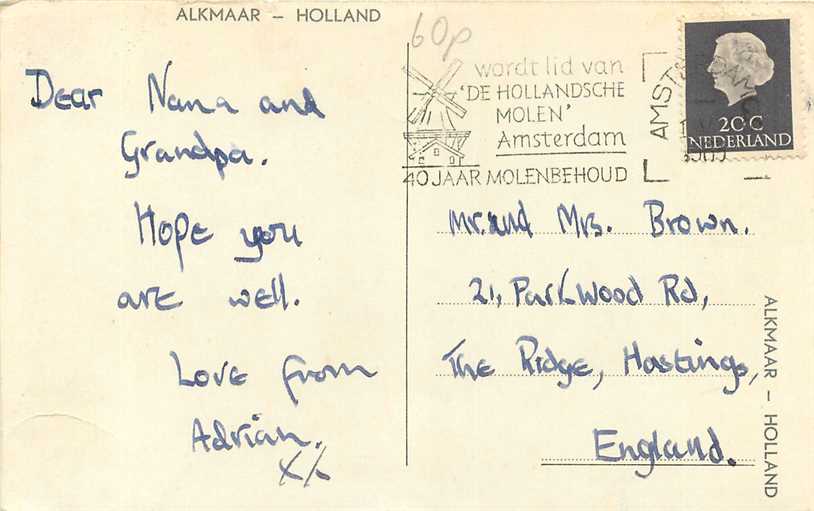 ALKMAAR – HOLLAND
Dear Nana and
Grandpa.
Hope you
are well.
Love from
Adrian.
xx
60p
wordt lid van
'DE HOLLANDSCHE
MOLEN'
Amsterdam
40 JAAR MOLENBEHOUD
AMSTERDAM
20C
NEDERLAND
Mr. and Mrs. Brown.
21, Parkwood Rd,
The Ridge, Hastings,
England.
ALKMAAR – HOLLAND